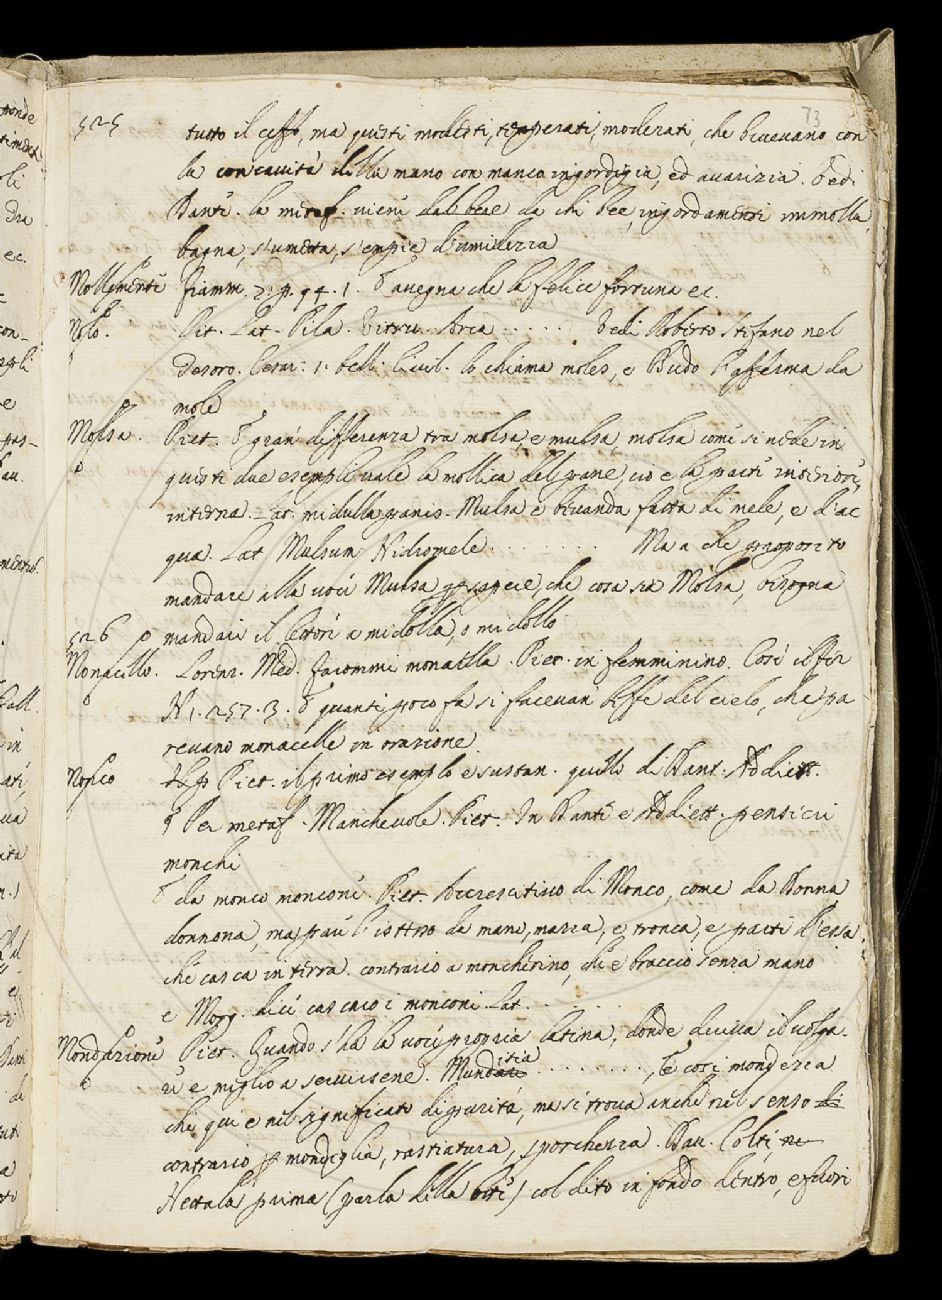 73
525 tutto il ceffo, ma questi modesti, temperati, moderati, che bevevano con
la concavità della mano con manco ingordigia, ed avarizia. Vedi
Dante. la metaf. viene dal bere da chi bee, ingordamente immolla
bagna, s'umetta, s'empie d'umidezza
Mollemente Fiamm. 2. p. 94. 1. avegna che la felice fortuna ec.
Molo. Piet. Lat. Pila. Vitru. Arca . . . . . Vedi Roberto Stefano nel
Tesoro. Cesar. 1. bell. Civil. lo chiama moles, e Budo l'afferma da
mole
Molsa. Piet. gran differenza tra molsa, e mulsa, molsa come si vede in
questi due esempli vale la mollica del pane, cio e la parte interiore,
interna. Lat. midulla panis. Mulsa e bevanda fatta di mele, e d'ac
qua. Lat Mulsum Hidromele . . . . . . . . Ma a che proposito
mandare alla voce Mulsa per sapere, che cosa sia Molsa, bisogna
526 mandare il lettore a midolla, o midollo
Monacello. Lorenz. Med. Facemmi monacella. Piet. in femminino. Così il Fir
N 1. 257. 3. quanti poco fa si facevan beffe del cielo, che pa
revano monacelle in orazione
Monco Piet. il primo esemplo e sustan. quello di Dant. Addiett.
Per metaf. Manchevole. Piet. In Dante e Addiett. pensieri
monchi
da monco moncone. Piet. Accrescitivo di Monco, come da Donna
donnona, ma par l'istesso da mano, mazza, e tronca, e parte d'essa
che casca in terra. contrario a moncherino, che e braccio senza mano
e Morg. dice cascaro i monconi. Lat . . . . .
Mondazione Piet. Quando s'ha la voce propria latina, donde deriva il volga
re e meglio a servirsene. Munditia . . . . . . . . , E così mondezza
che qui e nel significato di purità, ma si trova anche nel senso di
contrario, per mondiglia, rastiatura, sporchezza. Dav. Colti, ne
Nettala prima (parla della botte) col dito in fondo dentro, e fuori